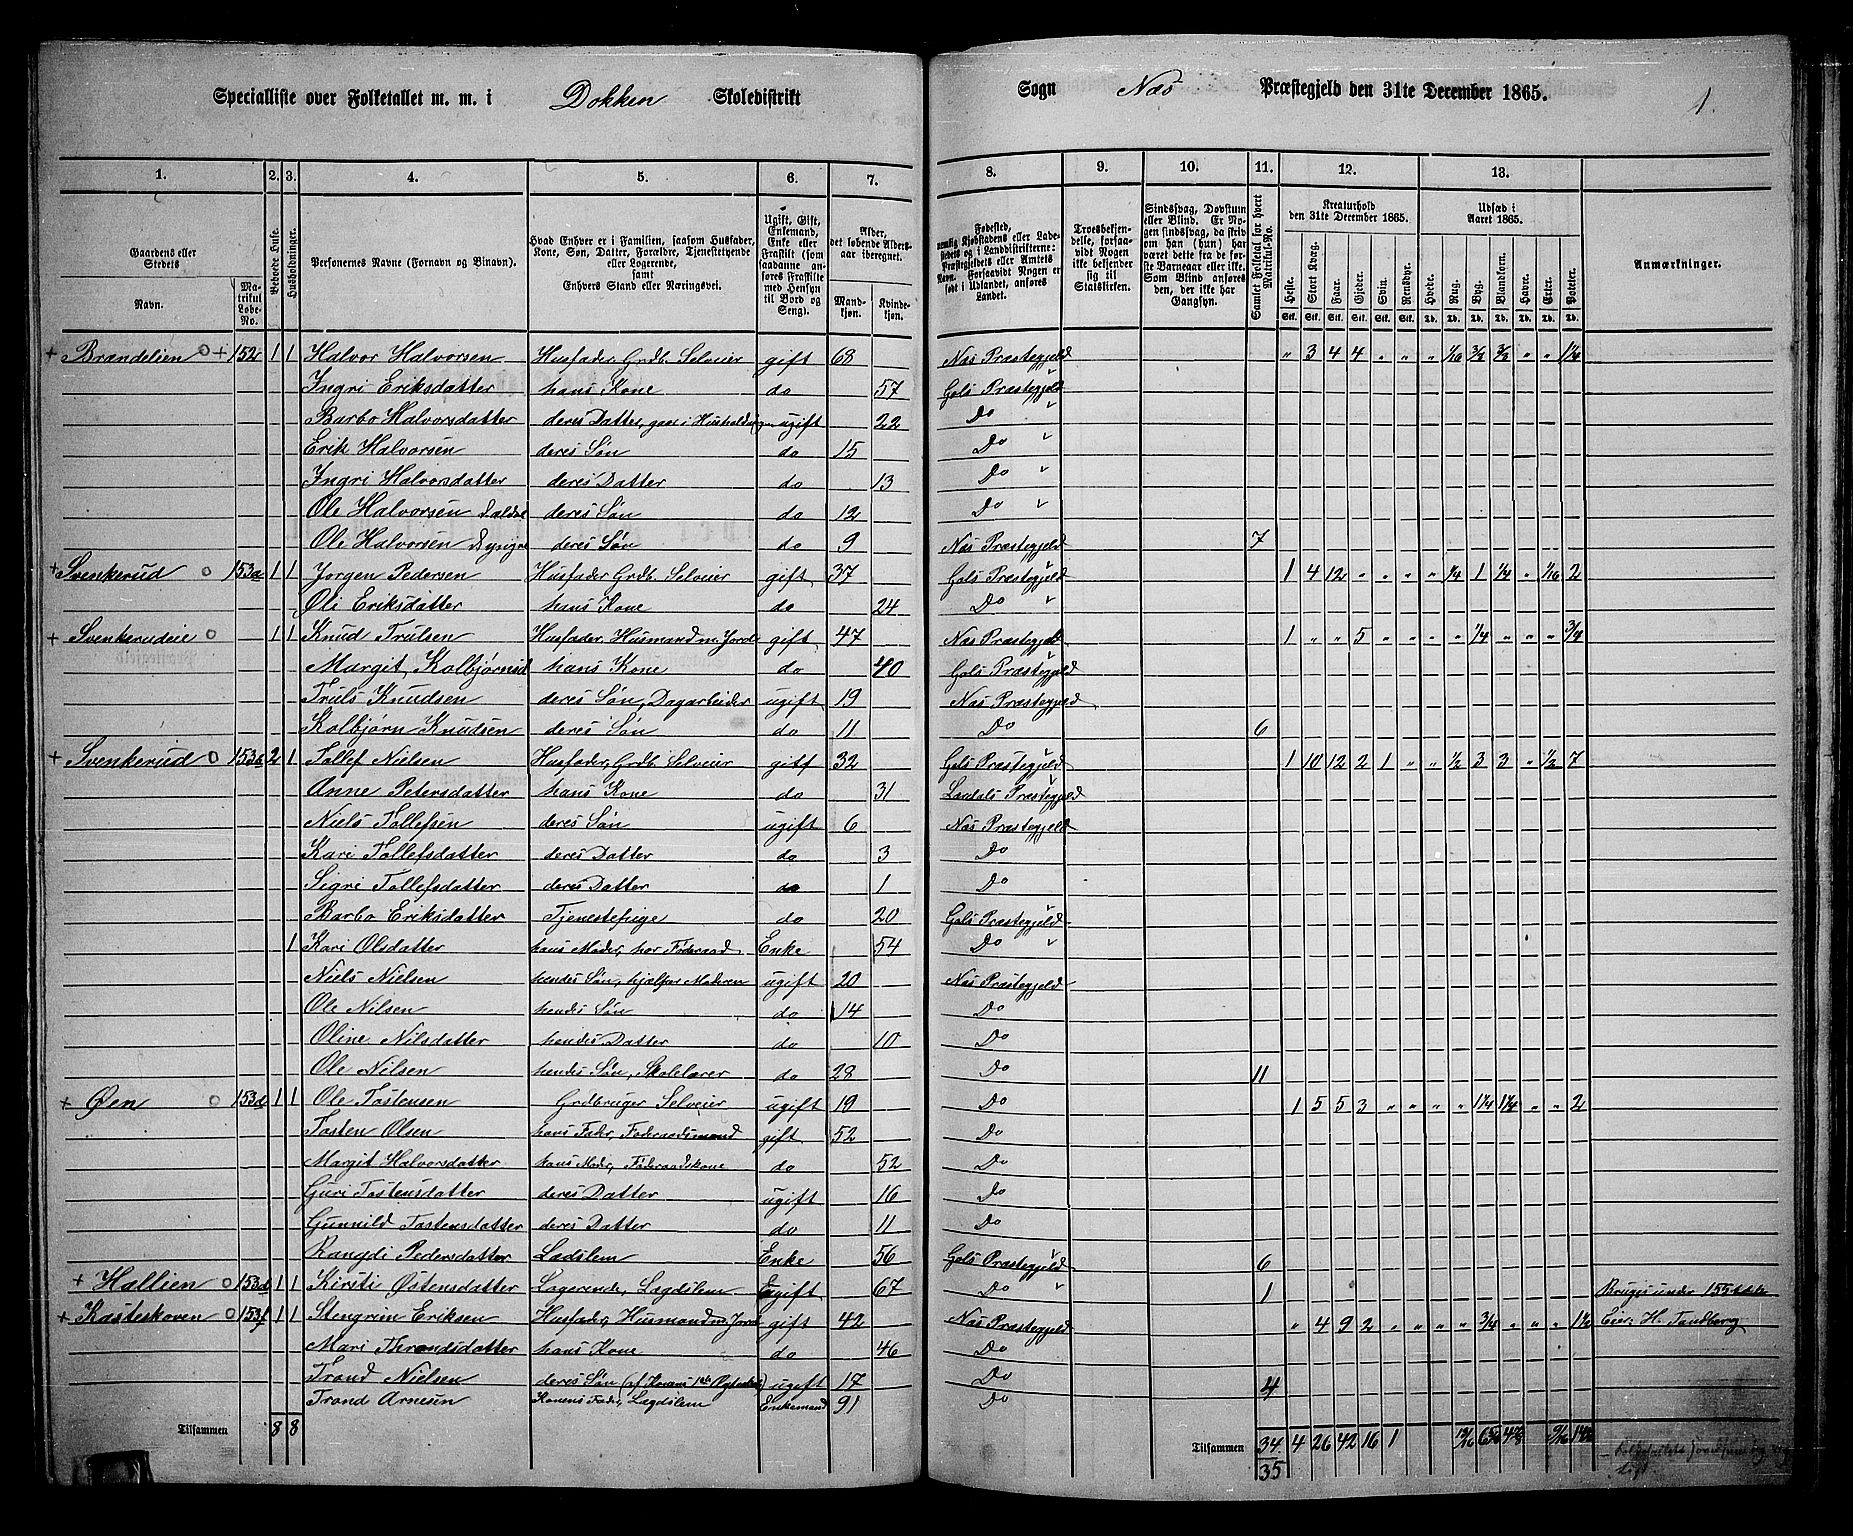 Specialliste over Folketallet m. m. i Dokken Skoledistrikt Sogn Næs Præstegjeld den 31te December 1865. 1.
1. 2. 3. 4. 5. 6. 7. 8. 9. 10. 11. 12. 13.
Gaardens eller Stedets
Navn. Matrikul Løbe-No.
Beboede Huse.
Husholdninger.
Personernes Navne (Fornavn og Binavn).
Hvad Enhver er i Familien, saasom Husfader, Kone, Søn, Datter, Forældre, Tjenestetyende eller Logerende, samt Enhvers Stand eller Næringsvei.
Ugift, Gift, Enkemand, Enke eller Fraskilt (som saadanne anføres Fraskilte med Hensyn til Bord og Seng).
Alder, det løbende Alders-aar iberegnet.
Mandkjøn. Kvindekjøn.
Fødested, nemlig Kjøbstadens eller Ladestedets og i Landdistrikterne: Præstegjeldets eller Amtets Navn. Forsaavidt Nogen er født i Udlandet, anføres Landet.
Troesbekjendelse, forsaavidt Nogen ikke bekjender sig til Statskirken.
Sindssvag, Døvstum eller Blind. Er Nogen sindssvag, da skrives om han (hun) har været dette fra de første Barneaar eller ikke. Som Blind anføres den, der ikke har Gangsyn.
Samlet Folketal for hvert Matrikul-No.
Kreaturhold den 31te December 1865.
Heste. Stort Kvæg. Faar. Gjeder. Svin. Rensdyr.
Udsæd i Aaret 1865.
Hvede. Rug. Byg. Blandkorn. Havre. Erter. Poteter.
Anmærkninger.
+ Brandelien o + 152 1 1 Halvor Halvorsen Husfader Grdb. Selveier gift 68 Næs Præstegjeld " 3 4 4 " " " 1/16 3/2 3/2 " " 1 1/4
Ingri Eriksdatter hans Kone do 57 Gols Præstegjeld
Barbo Halvorsdatter deres Datter, gaar i Husholdn ugift 22 Do
Erik Halvorsen deres Søn do 15 Do
Ingri Halvorsdatter deres Datter do 13 Do
Ole Halvorsen deres Søn do 12 Do
Ole Halvorsen deres Søn do 9 Næs Præstegjeld 7
+ Svenkerud o 153a 1 1 Jørgen Pedersen Husfader Grdb. Selveier gift 37 Gols Præstegjeld 1 4 12 " " " " 1/4 1 1/4 " 1/16 2
Eriksdatter hans Kone do 24 Do
+ Svenkerudeie o 1 1 Knud Trulsen Husfader, Husmand m. Jord gift 47 Næs Præstegjeld 1 " " 5 " " " " 1/4 " " " 3/4
Margit Kolbjørnsd hans Kone do 40 Gols Præstegjeld
Truls Knudsen deres Søn, Dagarbeider ugift 19 Næs Præstegjeld
Kolbjørn Knudsen deres Søn do 11 Do 6
+ Svenkerud o 153 2 1 Tollef Nielsen Husfader, Grdb. Selveier gift 32 Gols Præstegjeld 1 10 12 2 1 " " 1/2 3 3 " 1/2 7
Anne Petersdatter hans Kone do 31 Lærdals Præstegjeld
Niels Tollefsen deres Søn ugift 6 Næs Præstegjeld
Kari Tollefsdatter deres Datter do 3 Do
Sigri Tollefsdatter deres Datter do 1 Do
Barbo Eriksdatter Tjenestepige do 20 Gols Præstegjeld
1 Kari Olsdatter hans Moder, har Føderaad Enke 54 Do
Niels Nielsen hendes Søn, hjælper Moderen ugift 20 Næs Præstegjeld
Ole Nilsen hendes Søn do 14 Do
Oline Nilsdatter hendes Datter do 10 Do
Ole Nilsen hendes Søn, Skolelærer do 28 Do 11
+ Øen o 153 1 1 Ole Tostensen Grdbruger Selveier ugift 19 Do 1 5 5 3 " " " " 1 1/4 1 1/4 " " 2
Tosten Olsen hans Fadr, Føderaadsmand gift 52 Do
Margit Halvorsdatter hans Moder, Føderaadskone do 52 Do
Guri Tostensdatter deres Datter ugift 16 Do
Gunnild Tostensdatter deres Datter do 11 Do
Rangdi Pedersdatter Lædslem Enke 56 Gols Præstegjeld 6
+ Hallien o 153 1 1 Kirsti Østensdatter Logerende, Lægdslem ugift 67 Do 1 Bruges under 155
+ Kasteskoven o 153f 1 1 Stengrim Eriksen Husfader, Husmand m. Jord gift 42 Næs Præstegjeld " 4 9 2 " " " " 3/4 " " " 1 1/2 Eier: H. Tandberg
Mari Throndsdatter hans Kone do 46 Do
Trond Nielsen deres Søn (af Konens 1ste Ægteskab) ugift 17 Do 4
Trond Arnesen Konens Fader, Lægdslem Enkemand 91 Do
Tilsammen 8 8 Tilsammen 34 4 26 42 16 1
35